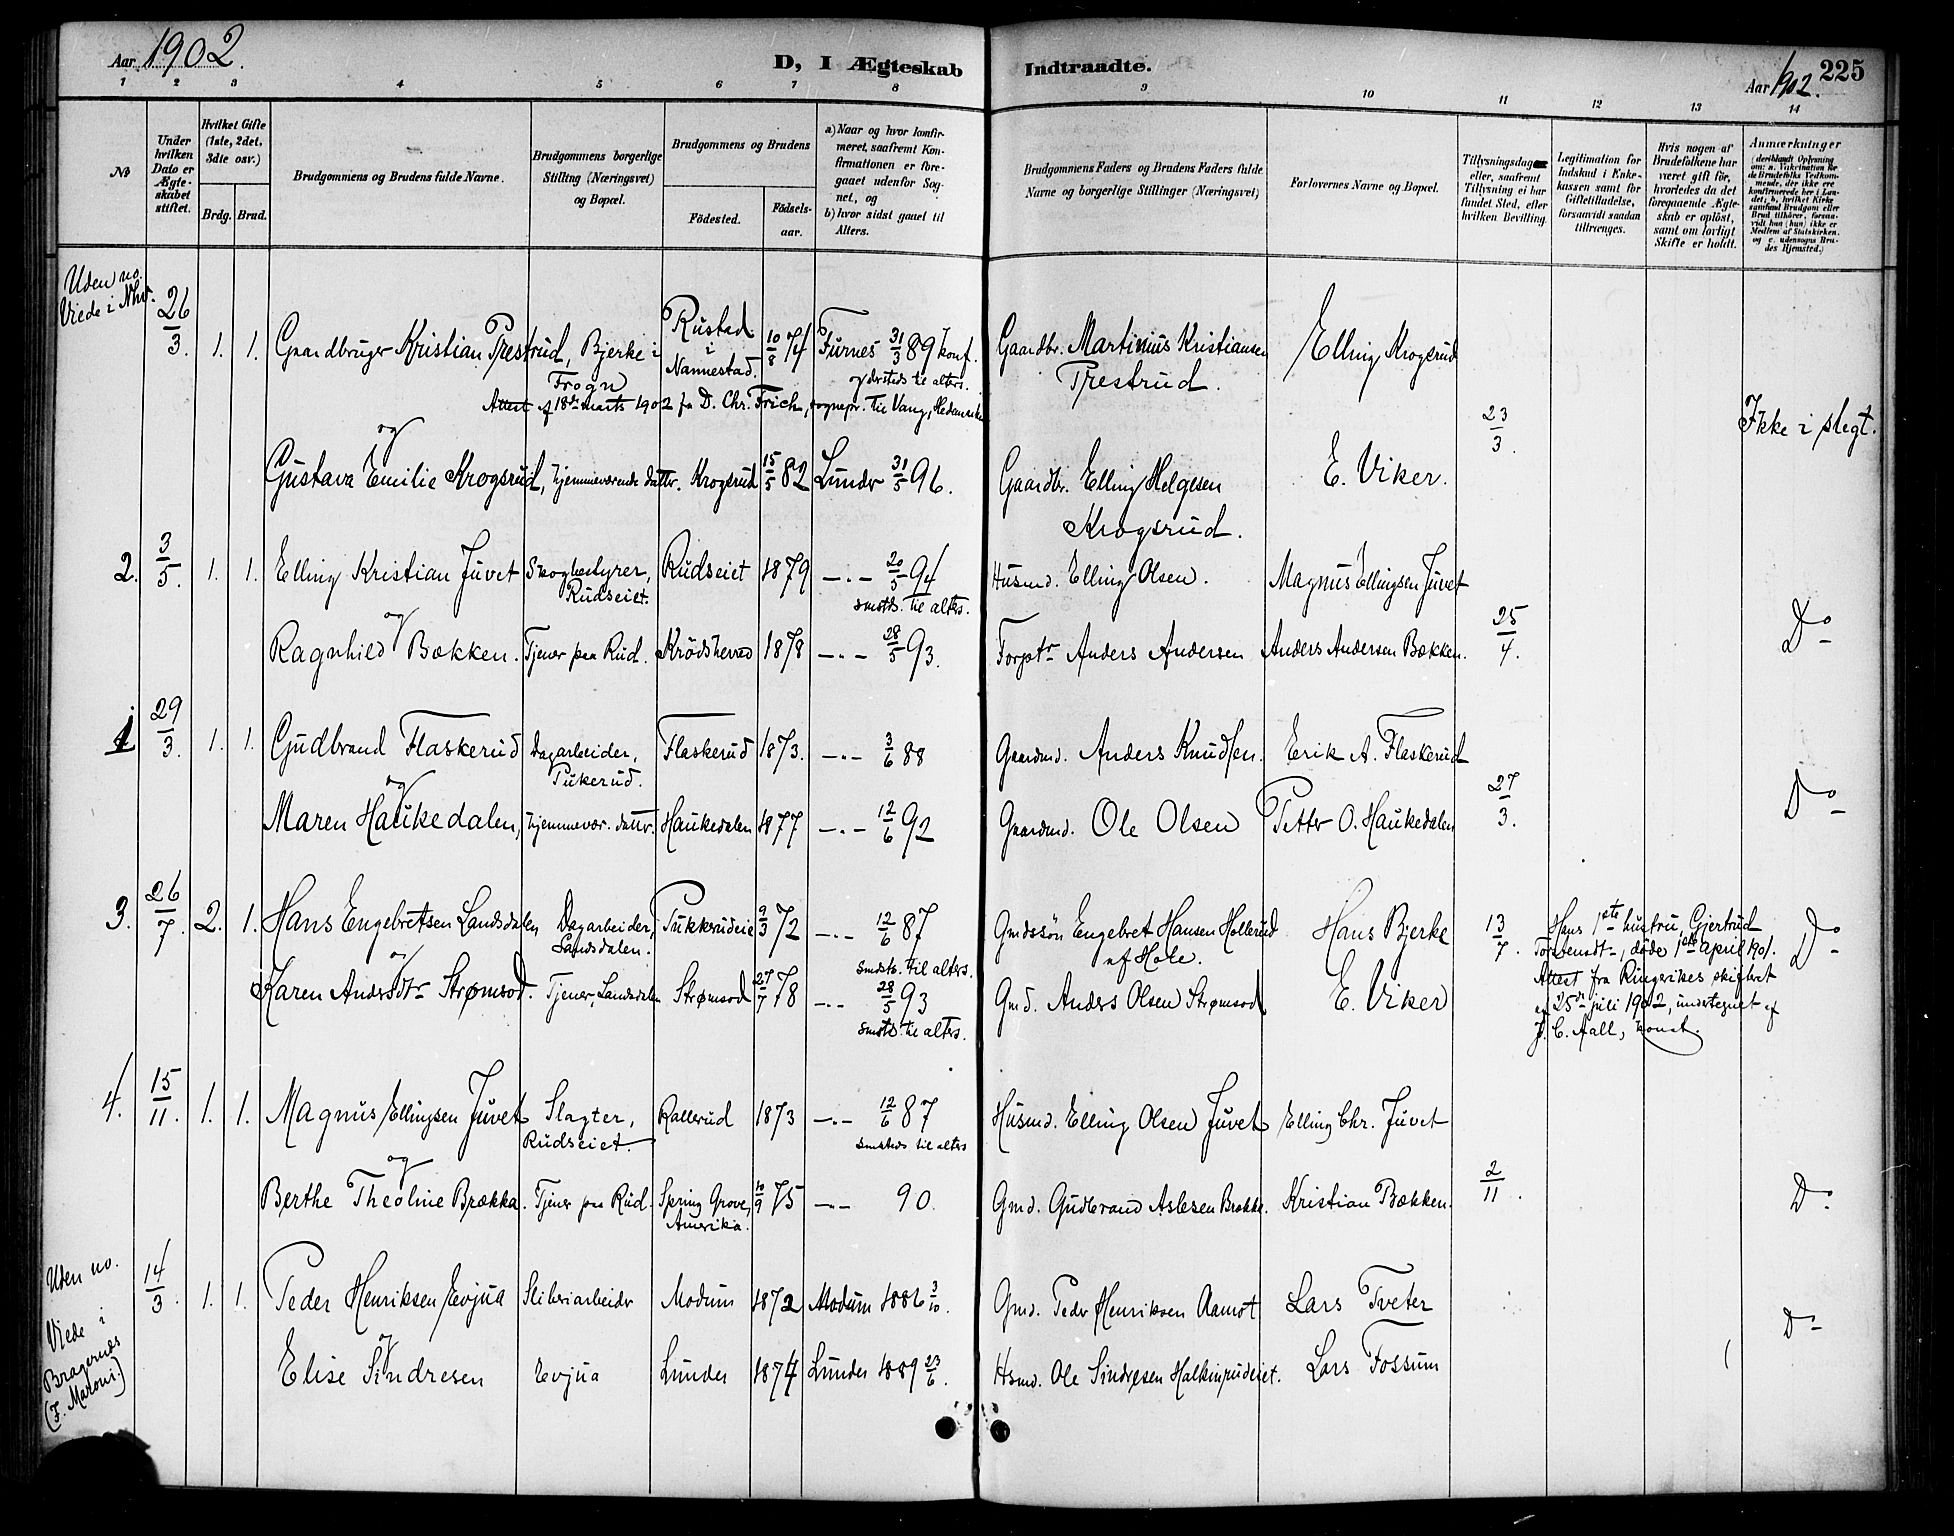 Aar 1902.
D, I Ægteskab Indtraadte.
Aar 1902.
225
1 2 3 4 5 6 7 8 9 10 11 12 13 14
No
Under hvilken Dato er Ægteskabet stiftet.
Hvilket Gifte (1ste, 2det, 3die osv.)
Brdg. Brud.
Brudgommens og Brudens fulde Navne.
Brudgommens borgerlige Stilling (Næringsvei) og Bopæl.
Brudgommens og Brudens
Födested.
Födselsaar.
a) Naar og hvor konfirmeret, saafremt Konfirmationen er foregaaet udenfor Sognet, og
b) hvor sidst gaaet til Alters.
Brudgommens Faders og Brudens Faders fulde Navne og borgerlige Stillinger (Næringsvei)
Forlovernes Navne og Bopæl.
Tillysningsdag eller, saafremt Tillysning ei har fundet Sted, efter hvilken Bevilling.
Legitimation for Indskud i Enkekassen samt for Giftetilladelse, forsaavidt saadan tiltrænges.
Hvis nogen af Brudefolkene har været gift för, hvorledes da det foregaaende Ægteskab er oplöst, samt om lovligt Skifte er holdt.
Anmærkninger
Uden no.
Viede i Nhv.
26/3. 1. 1. Gaardbruger Kristian Prestrud, Bjerke i Frogn Rustad i Nannestad. 10/8 74 Furnes 31/3 89 konf. Gaardbr. Martinius Kristiansen Prestrud. Elling Krogsrud
Attest af 18de marts 1902 fra D. Chr. Frich, sognepr. til Vang, Hedemarken
23/3. Ikke i slegt.
og
Gustava Emilie Krogsrud, hjemmeværende datter. Krogsrud 15/5 82 Lunder 31/5 96. Gaardbr. Elling Helgesen Krogsrud. E. Viker.
2. 3/5. 1. 1. Elling Kristian Juvet Skogbestyrer, Rudseiet. Rudseiet 1879 -.- 20/5 94 smsts. til alters. Husmd. Elling Olsen. Magnus Ellingsen Juvet
og
25/4. Do
Ragnhild Bækken. Tjener paa Rud. Krödsherred 1878 -.- 28/5 93. Torptr Anders Andersen Anders Andersen Bækken.
1 29/3. 1. 1. Gudbrand Flaskerud Dagarbeider, Pukerud. Flaskerud 1873. -.- 3/6 88 Gaardmd. Anders Knudsen. Erik A. Flaskerud
og
27/3. Do
Maren Haukedalen, hjemmevær. dattr. Haukedalen 1877 -.- 12/6 92 Gaardmd. Ole Olsen Petter O. Haukedalen
3. 26/7. 2. 1. Hans Engebretsen Landsdalen Dagarbeider, Landsdalen. Pukkerudeie 9/3 72 -.- 12/6 87 smsts. til alters. Gmdssön Engebret Hansen Hollerud af Hole. Hans Bjerke 13/7.
Hans 1ste hustru, Gjertrud
døde 1ste April 1901.
Attest fra Ringerikes skifteret
af 25de juli 1902, undertegnet af
J. C. Aall, konst.
Do
og
Karen Andersdtr Strømsod. Tjener, Landsdalen Strømsod 27/7 78 -.- 28/5 93 smsts til alters. Gmd. Anders Olsen Strømsod E. Viker
4. 15/11. 1. 1. Magnus Ellingsen Juvet Slagter, Rudseiet. Rallerud 1873 -.- 12/6 87 smsteds til alters Husmd. Elling Olsen Juvet Elling Chr. Juvet
og
2/11. Do
Berthe Theoline Brække. Tjener paa Rud. Spring Grove, Amerika. 10/9 75 -.- 90. Gmd. Gudbrand Aslesen Brække. Kristian Bækken.
Uden no.
Viede i
Bragernes
14/3. 1. 1. Peder Henriksen Evjua Sliberiarbeider Modum 1872 Modum 1886 3/10. Gmd. Peder Henriksen Aamot Lars Tveter
og
Do
Elise Sindresen Evjua Lunder 1874 Lunder 1889 23/6. Hsmd. Ole Sindresen Lars Fossum